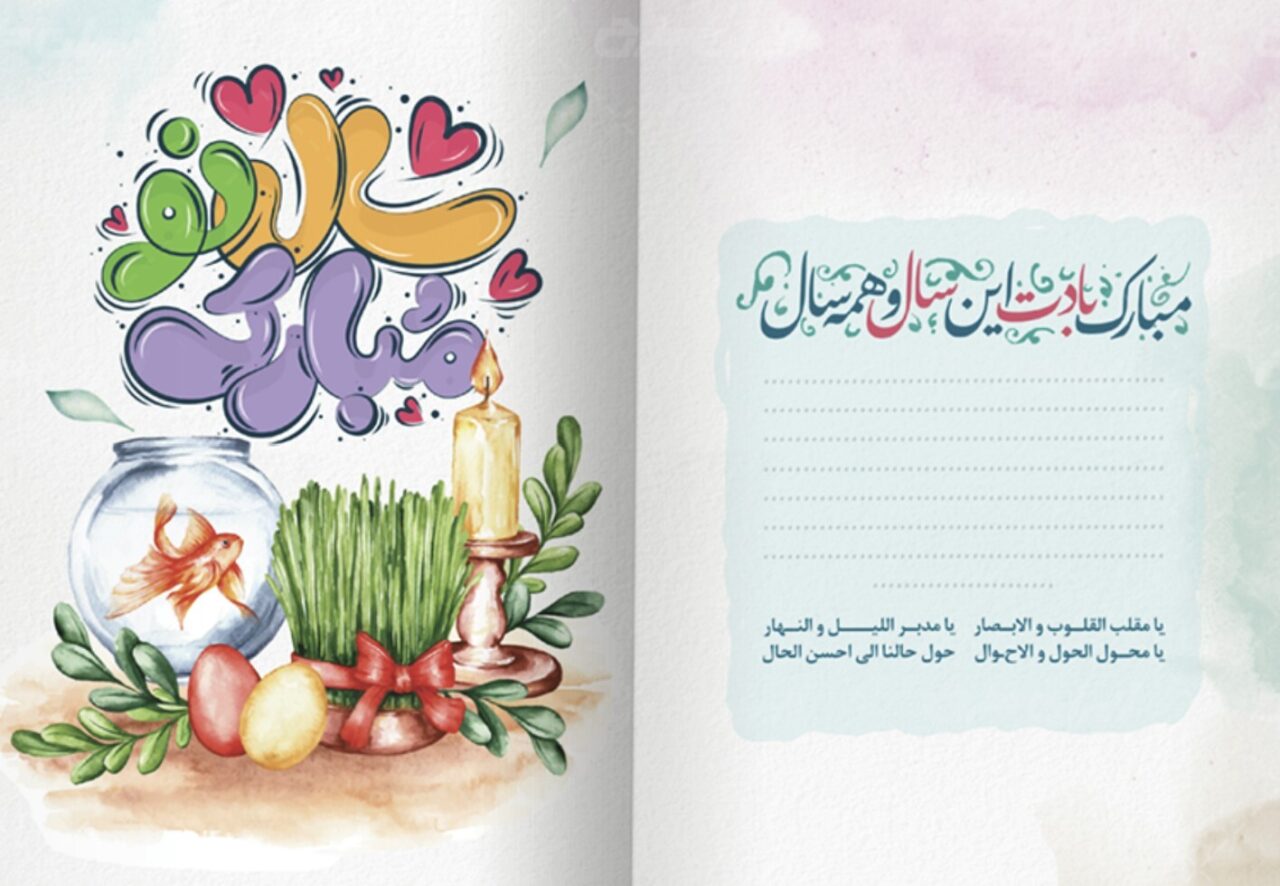 سال نو
مبارک
مبارک بادت این سال و همه سال
یا مقلب القلوب و الابصار یا مدبر اللیل و النهار
یا محول الحول و الاحوال حول حالنا الی احسن الحال